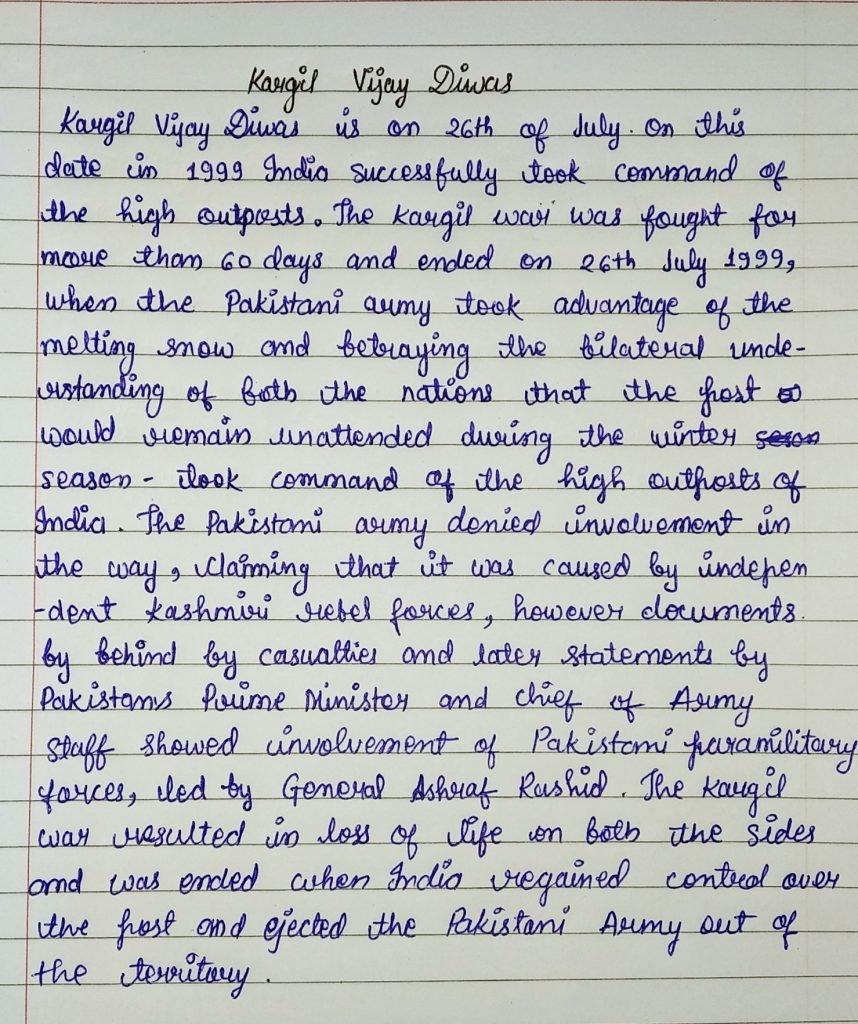 Kargil Vijay Diwas
Kargil Vijay Diwas is on 26th of July. On this
date in 1999 India successfully took command of
the high outposts. The Kargil war was fought for
more than 60 days and ended on 26th July 1999,
when the Pakistani army took advantage of the
melting snow and betraying the bilateral unde-
rstanding of both the nations that the post
would remain unattended during the winter
season - took command of the high outposts of
India. The Pakistani army denied involvement in
the way, claiming that it was caused by indepen
-dent Kashmiri rebel forces, however documents.
by behind by casualties and later statements by
Pakistans Prime Minister and chief of Army
staff showed involvement of Pakistani paramilitary
forces, led by General Ashraf Rashid. The Kargil
war resulted in loss of life on both the sides
and was ended when India regained control over
the post and ejected the Pakistani Army out of
the territory.